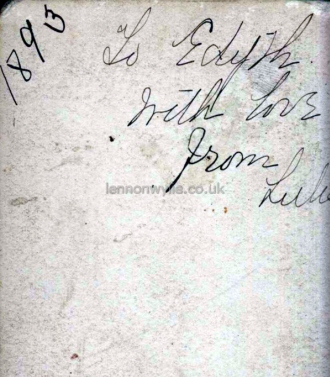 1893
To Edyth.
with love
from
lennonwylie.co.uk